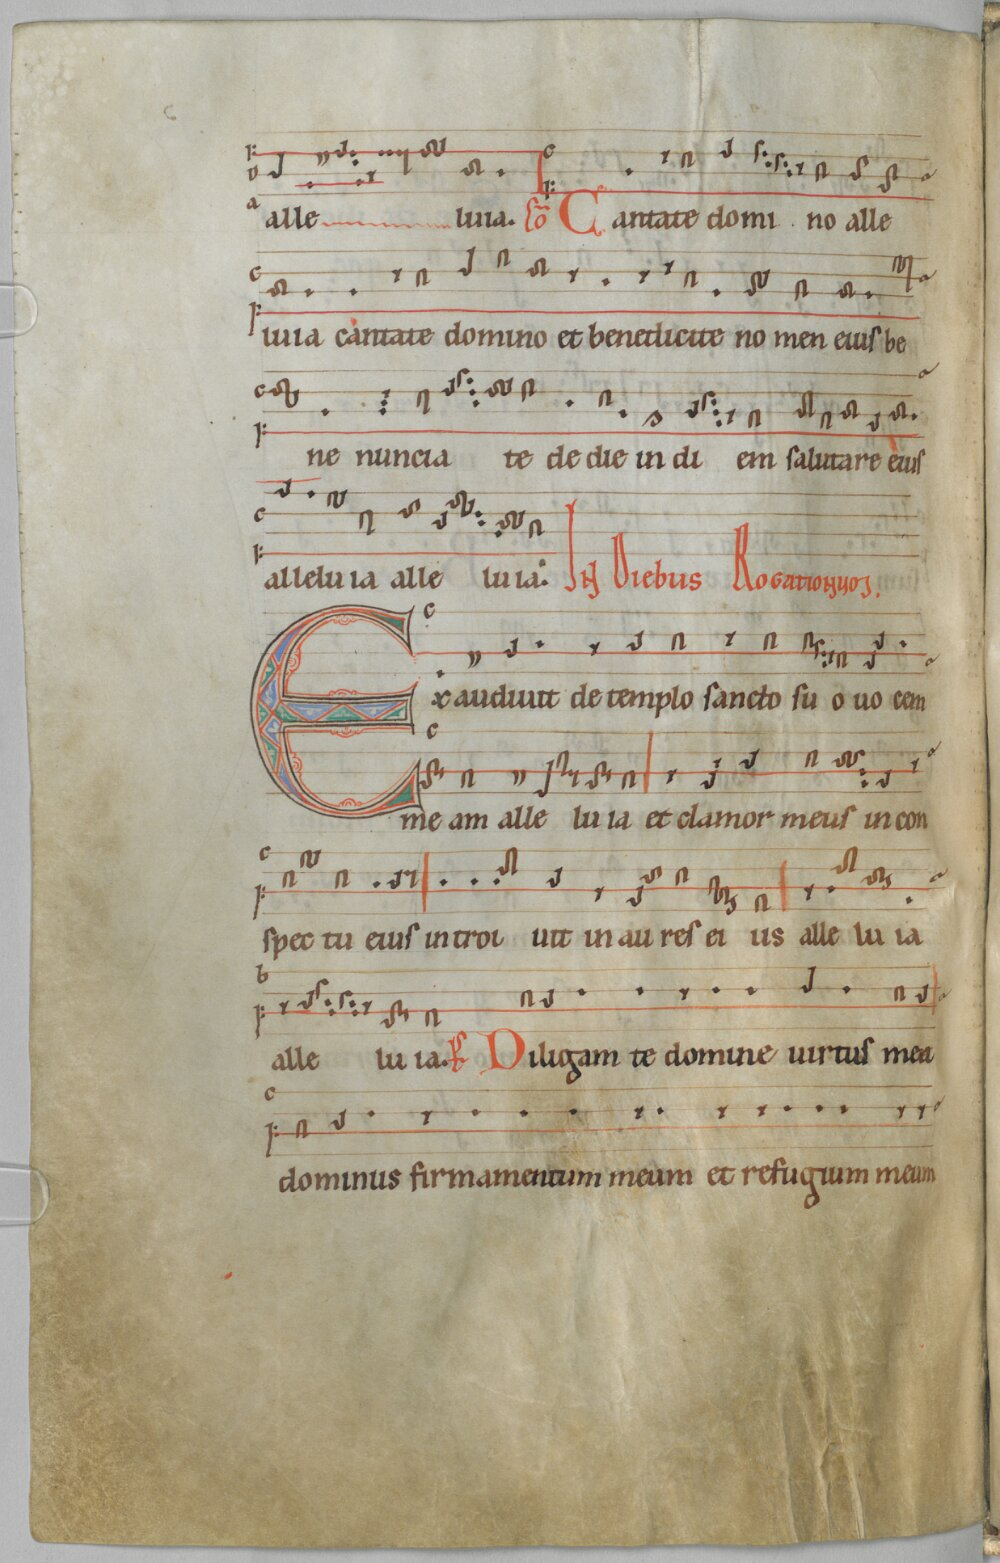 alle luia. Cō Cantate domi no alle
luia cantate domino et benedicite no men eius be
ne nuncia te de die in di em salutare eius
alleluia alle luia. In Diebus Rogationum.
Exaudiuit de templo sancto su o uo cem
me am alle lu ia et clamor meus in con
spec tu eius introi uit in au res ei us alle lu ia
alle lu ia. Ps Diligam te domine uirtus mea
dominus firmamentum meum et refugium meum